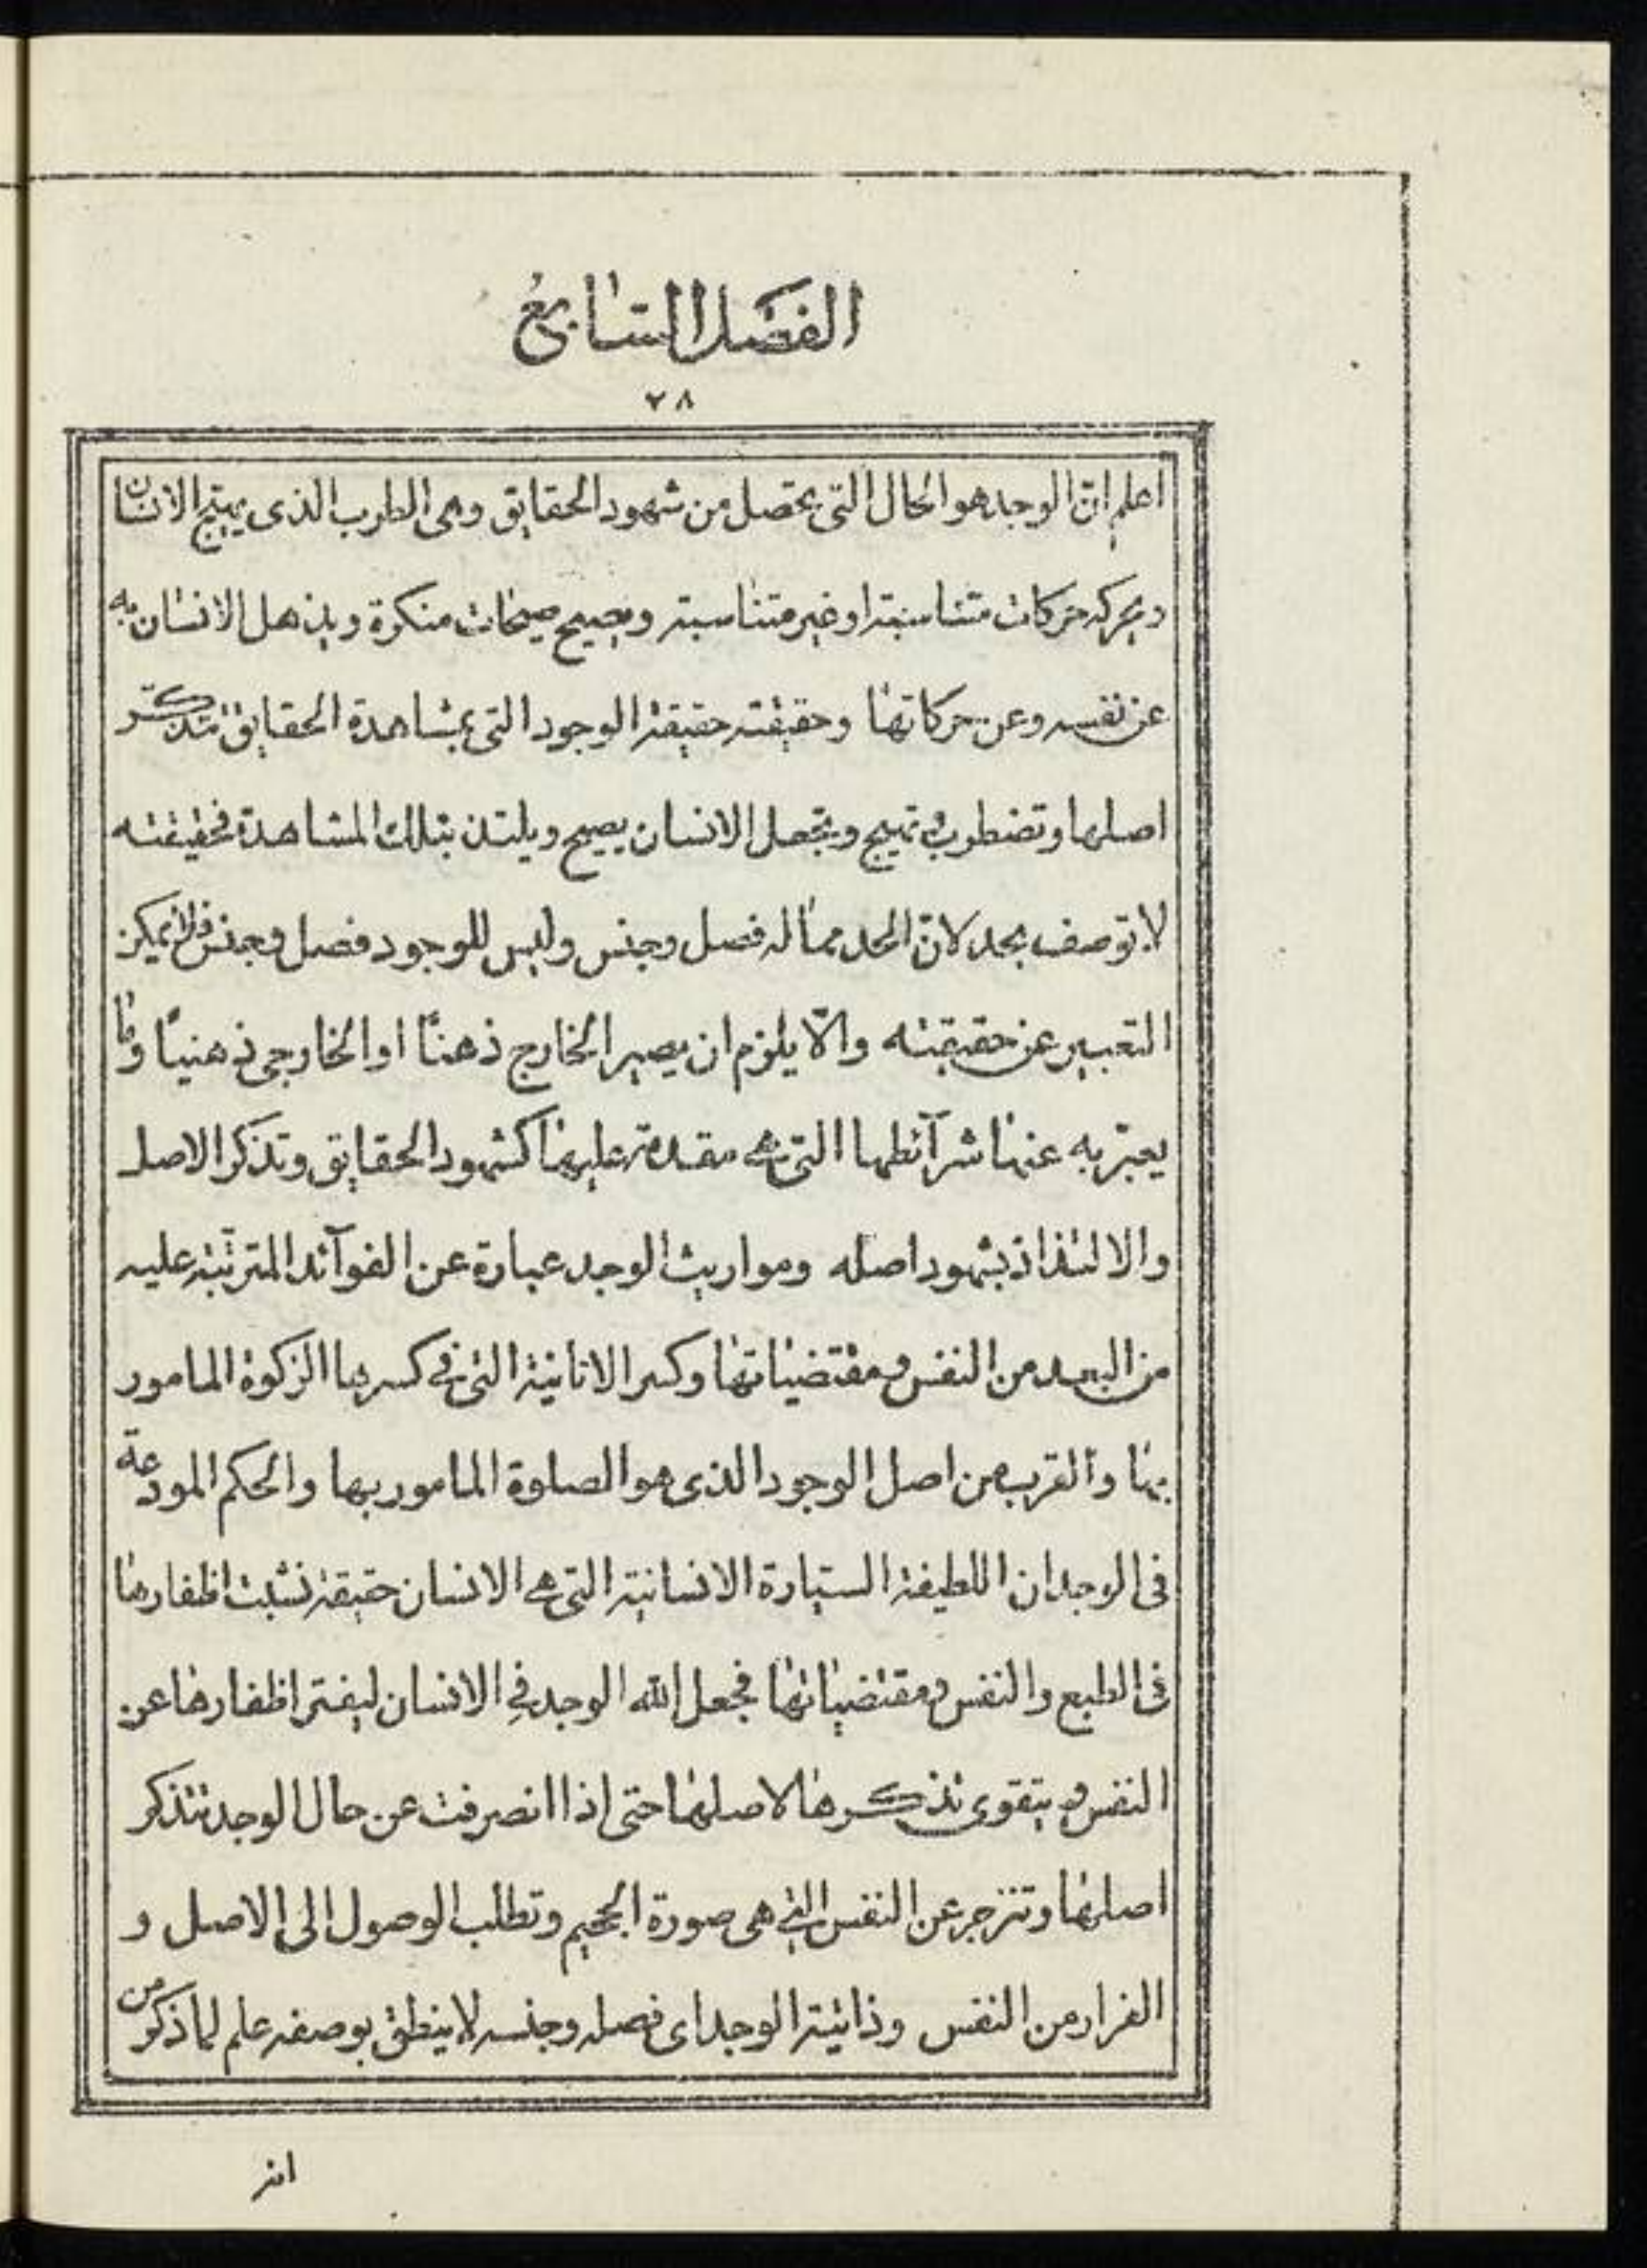 الفصل السابع
٢٨
اعلم ان الوجد هو الحال التى يحصل من شهود الحقايق وهى الطرب الذى يهيج الانسان
ويحركه حركات متناسبة او غير متناسبة ويصيح صيحات منكرة ويذهل الانسان به
عن نفسه وعن حركاتها وحقيقته حقيقة الوجود التى بمشاهدة الحقايق تتذكر
اصلها وتضطرب و تهيج وتجعل الانسان يصيح ويلتذ بتلك المشاهدة فحقيقته
لا توصف بحد لانّ الحد مما له فصل وجنس وليس للوجود فصل وجنس فلا يمكن
التعبير عن حقيقته والّا يلزم ان يصير الخارج ذهنًا او الخارجى ذهنيًا وما
يعبّر به عنها شرآئطها التى هى مقدمة عليها كشهود الحقايق وتذكر الاصل
والالتذاذ بشهود اصله ومواريث الوجد عبارة عن الفوآئد المترتّبة عليه
من البعد من النفس ومقتضياتها وكسر الانانية التى فى كسرها الزكوة المامور
بها والقرب من اصل الوجود الذى هو الصلوة المامور بها والحكم المودعة
فى الوجد ان اللطيفة السيارة الانسانية التى هى الانسان حقيقة نشبت اظفارها
فى الطبع والنفس ومقتضياتها فجعل الله الوجد فى الانسان ليفتر اظفارها عن
النفس و يتقوى تذكرها لاصلها حتى اذا انصرفت عن حال الوجد تتذكر
اصلها وتنزجر عن النفس التى هى صورة الجحيم وتطلب الوصول الى الاصل و
الفرار من النفس وذاتية الوجد اى فصله وجنسه لا ينطق بوصفه علم لما ذكر من
انه